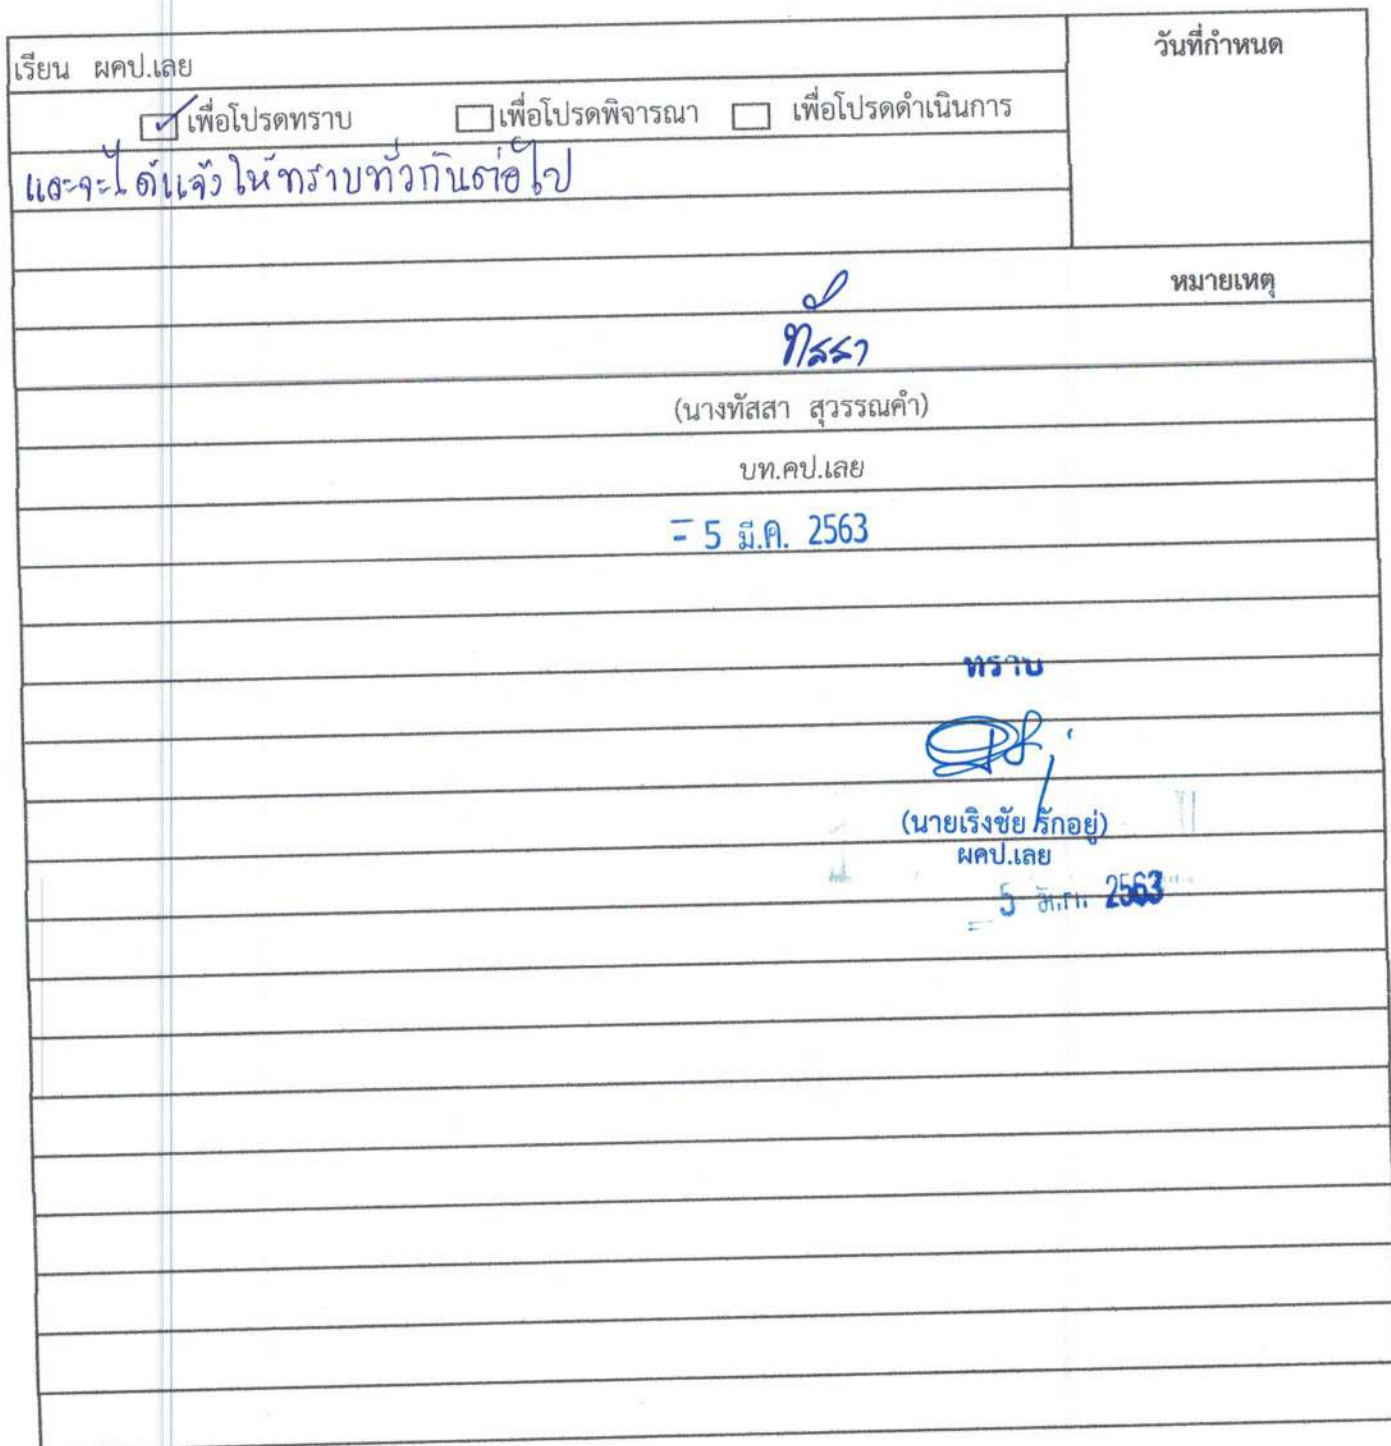 วันที่กำหนด
เรียน ผคป.เลย
เพื่อโปรดทราบ เพื่อโปรดพิจารณา เพื่อโปรดดำเนินการ
และจะได้แจ้งให้ทราบทั่วกันต่อไป
หมายเหตุ
ทัสสา
(นางทัสสา สุวรรณคำ)
บท.คป.เลย
= 5 มี.ค. 2563
ทราบ
(นายเริงชัย รักอยู่)
ผคป.เลย
= 5 มี.ค. 2563